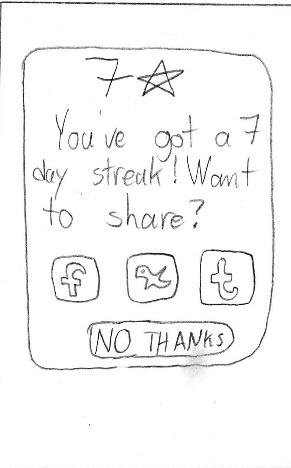 7
You've got a 7
day streak! Want
to share?
f t
NO THANKS